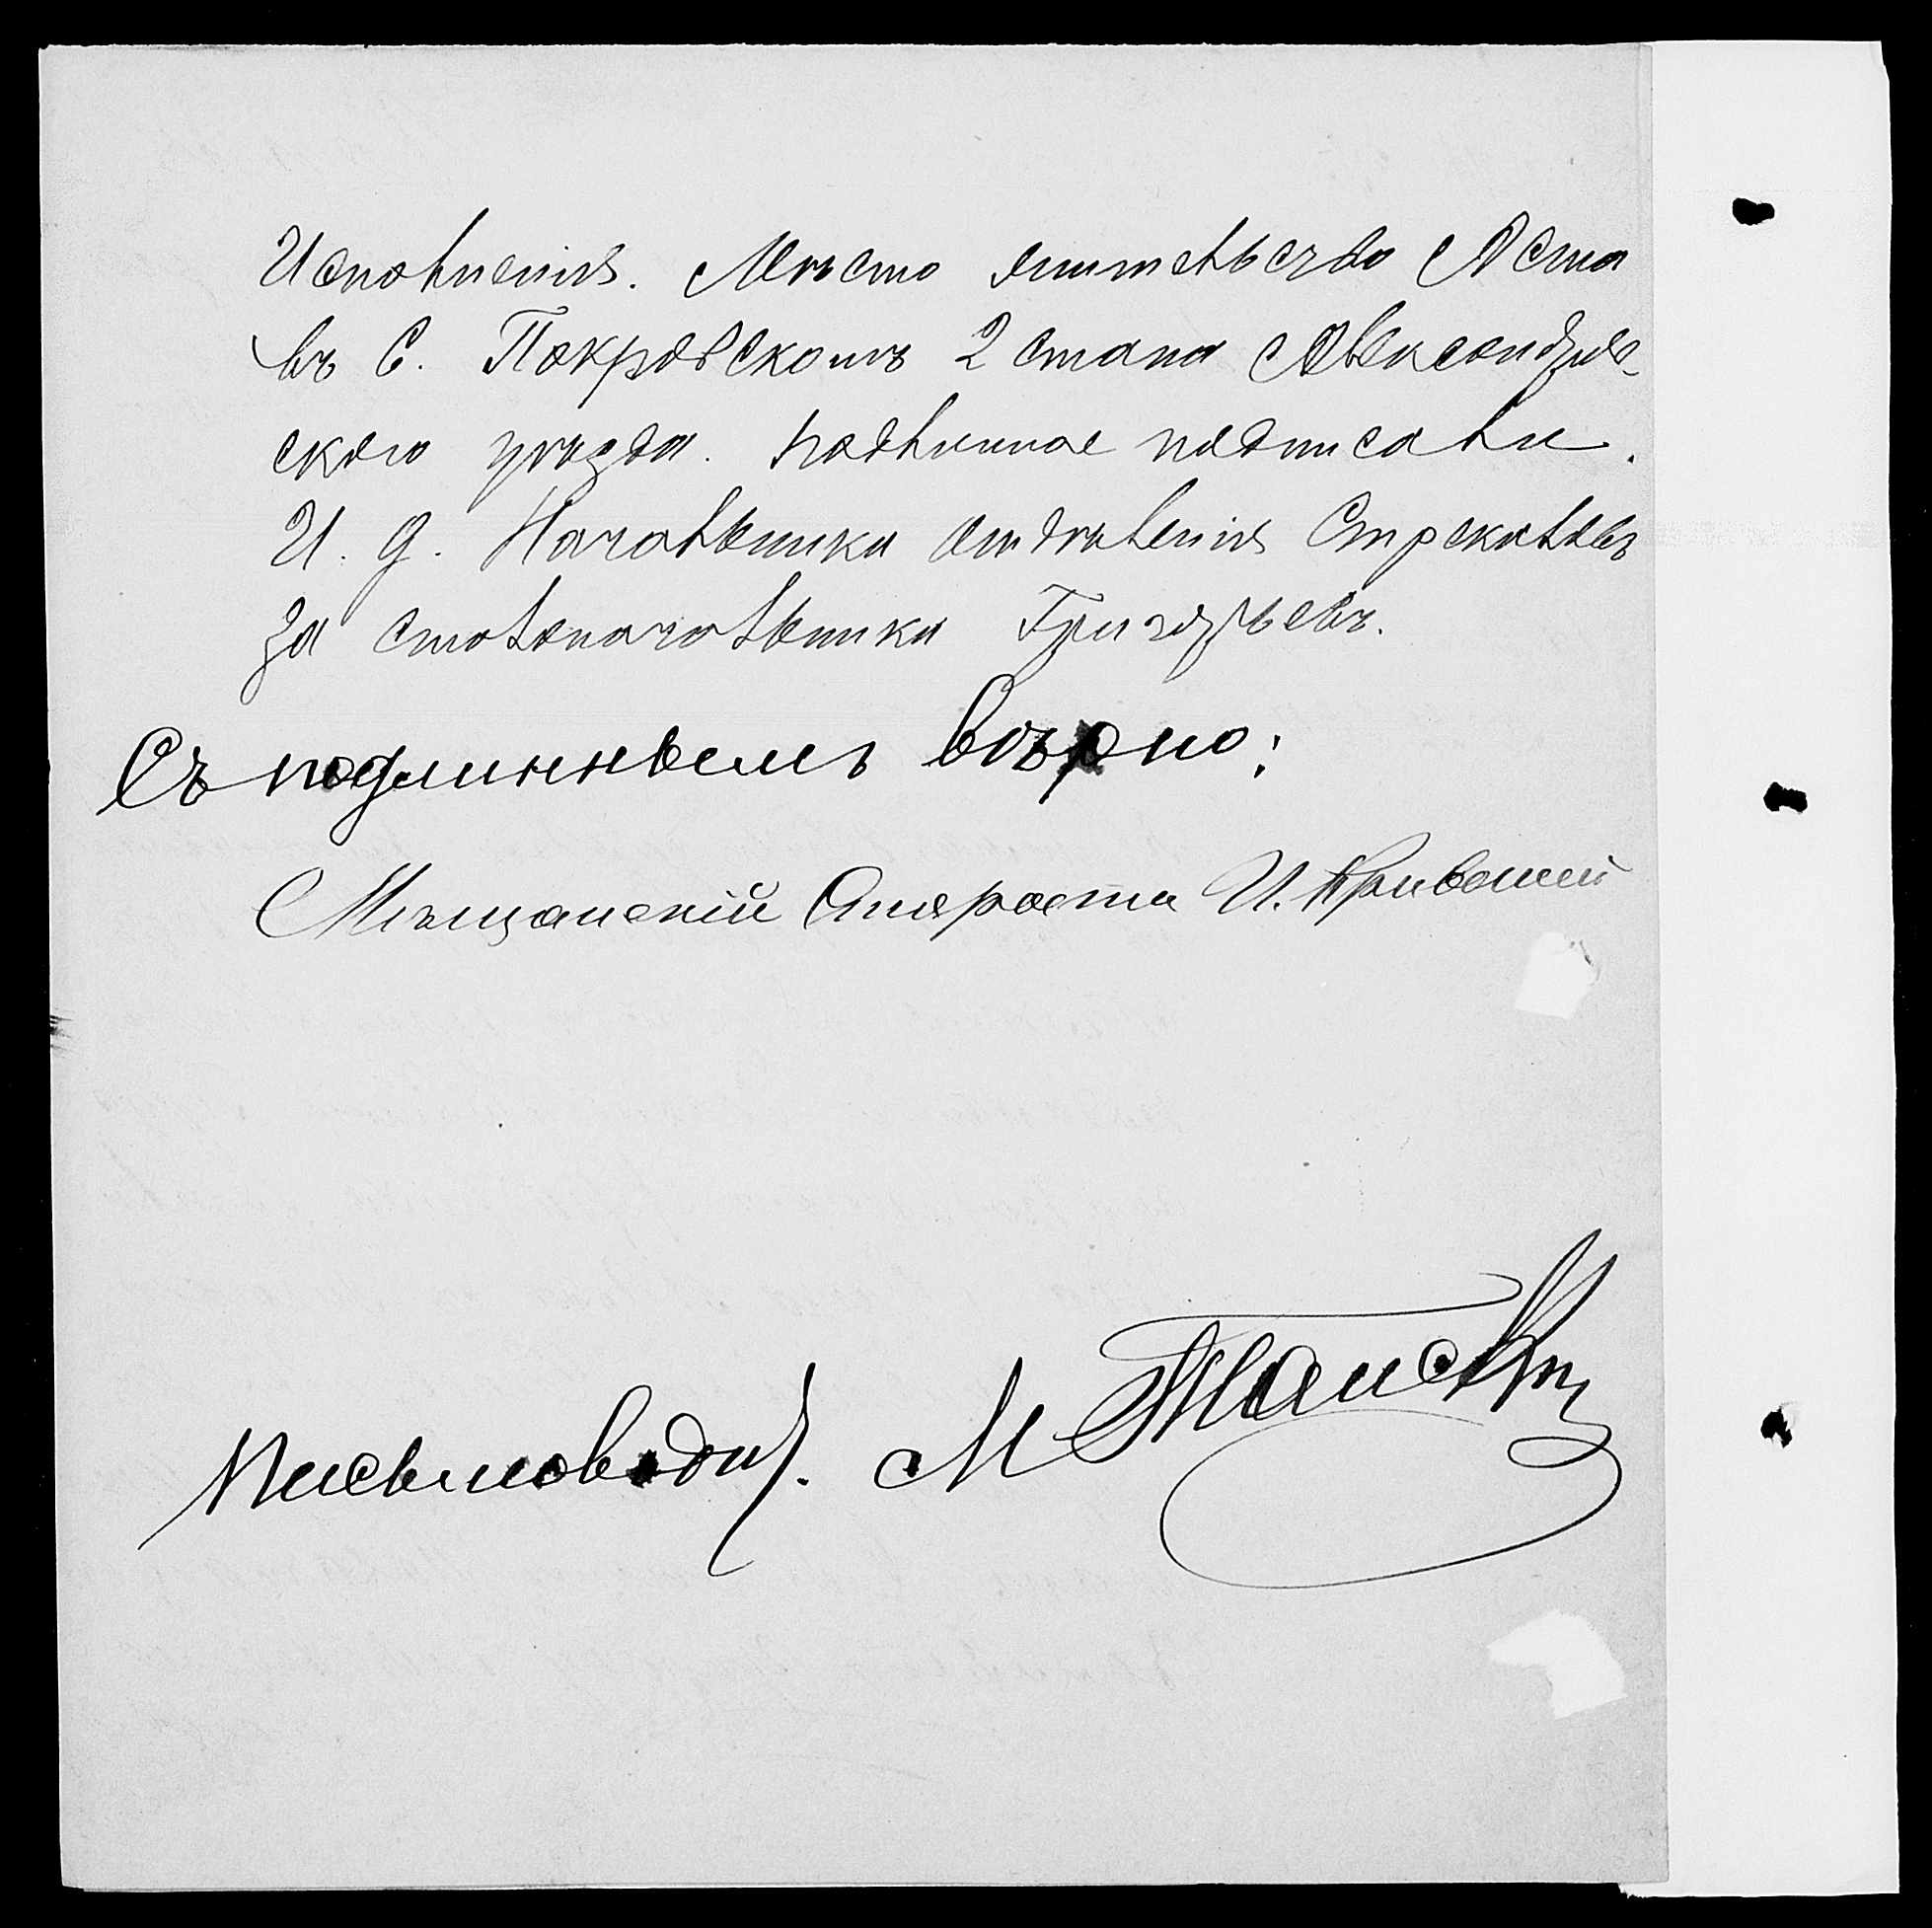 Исполненія. Мѣсто жительство Аста
въ С. Покровскомъ 2 стана Александрів-
скаго уѣзда. Подлинное подписали.
И. д. Начальника отдѣленія Стрекаловъ
За столоначальника Григорьевъ.
Съ подлиннымъ вѣрно:
Мѣщанскій Староста И.
Письмоводит. М